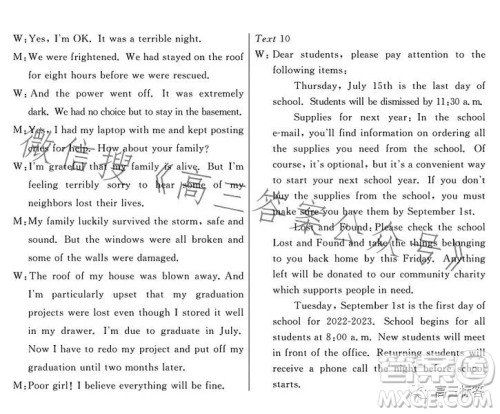 W: Yes, I'm OK. It was a terrible night.
M: We were frightened. We had stayed on the roof
for eight hours before we were rescued.
W: And the power went off. It was extremely
dark. We had no choice but to stay in the basement.
M: Yes, I had my laptop with me and kept posting
ones for help. How about your family?
W: I'm grateful that my family is alive. But I'm
feeling terribly sorry to hear some of my
neighbors lost their lives.
M: My family luckily survived the storm, safe and
sound. But the windows were all broken and
some of the walls were damaged.
W: The roof of my house was blown away. And
I'm particularly upset that my graduation
projects were lost even though I stored it well
in my drawer. I'm due to graduate in July.
Now I have to redo my project and put off my
graduation until two months later.
M: Poor girl! I believe everything will be fine.
Text 10
W: Dear students, please pay attention to the
following items:
Thursday, July 15th is the last day of
school. Students will be dismissed by 11:30 a.m.
Supplies for next year: In the school
e-mail, you'll find information on ordering all
the supplies you need from the school. Of
course, it's optional, but it's a convenient way
to start your next school year. If you don't
buy the supplies from the school, you must
make sure you have them by September 1st.
Lost and Found: Please check the school
Lost and Found and take the things belonging
to you back home by this Friday. Anything
left will be donated to our community charity
which supports people in need.
Tuesday, September 1st is the first day of
school of 2022-2023. School begins for all
students at 8:00 a.m. New students will meet
in front of the office. Returning students will
receive a phone call the night before school
starts.
微信搜《高三答案公众号》